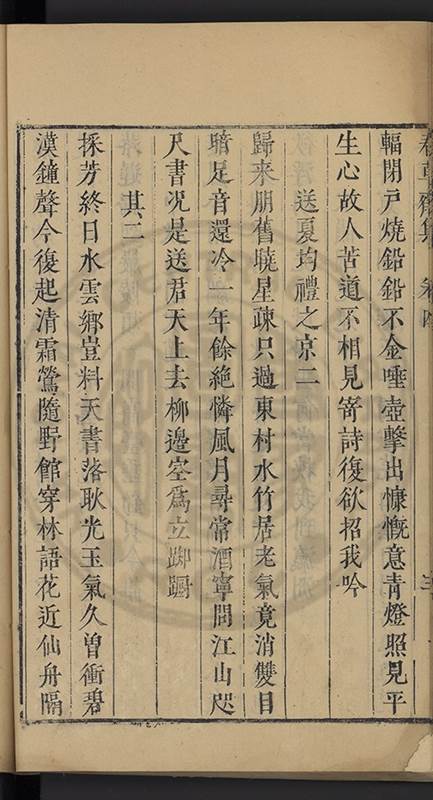 輻閉戸燒鉛鉛不金唾壺擊出慷慨意青燈照見平
生心故人苦道不相見寄詩復欲招我吟
送夏均禮之京二
歸來朋舊曉星疎只過東村水竹居老氣竟消雙目
暗足音還冷一年餘絶憐風月尋常酒寧問江山咫
尺書况是送君天上去柳邊空為立踟蹰
其二
採芳終日水雲鄉豈料天書落耿光玉氣久曾衝碧
漢鐘聲今復起清霜鶯隨野館穿林語花近仙舟隔